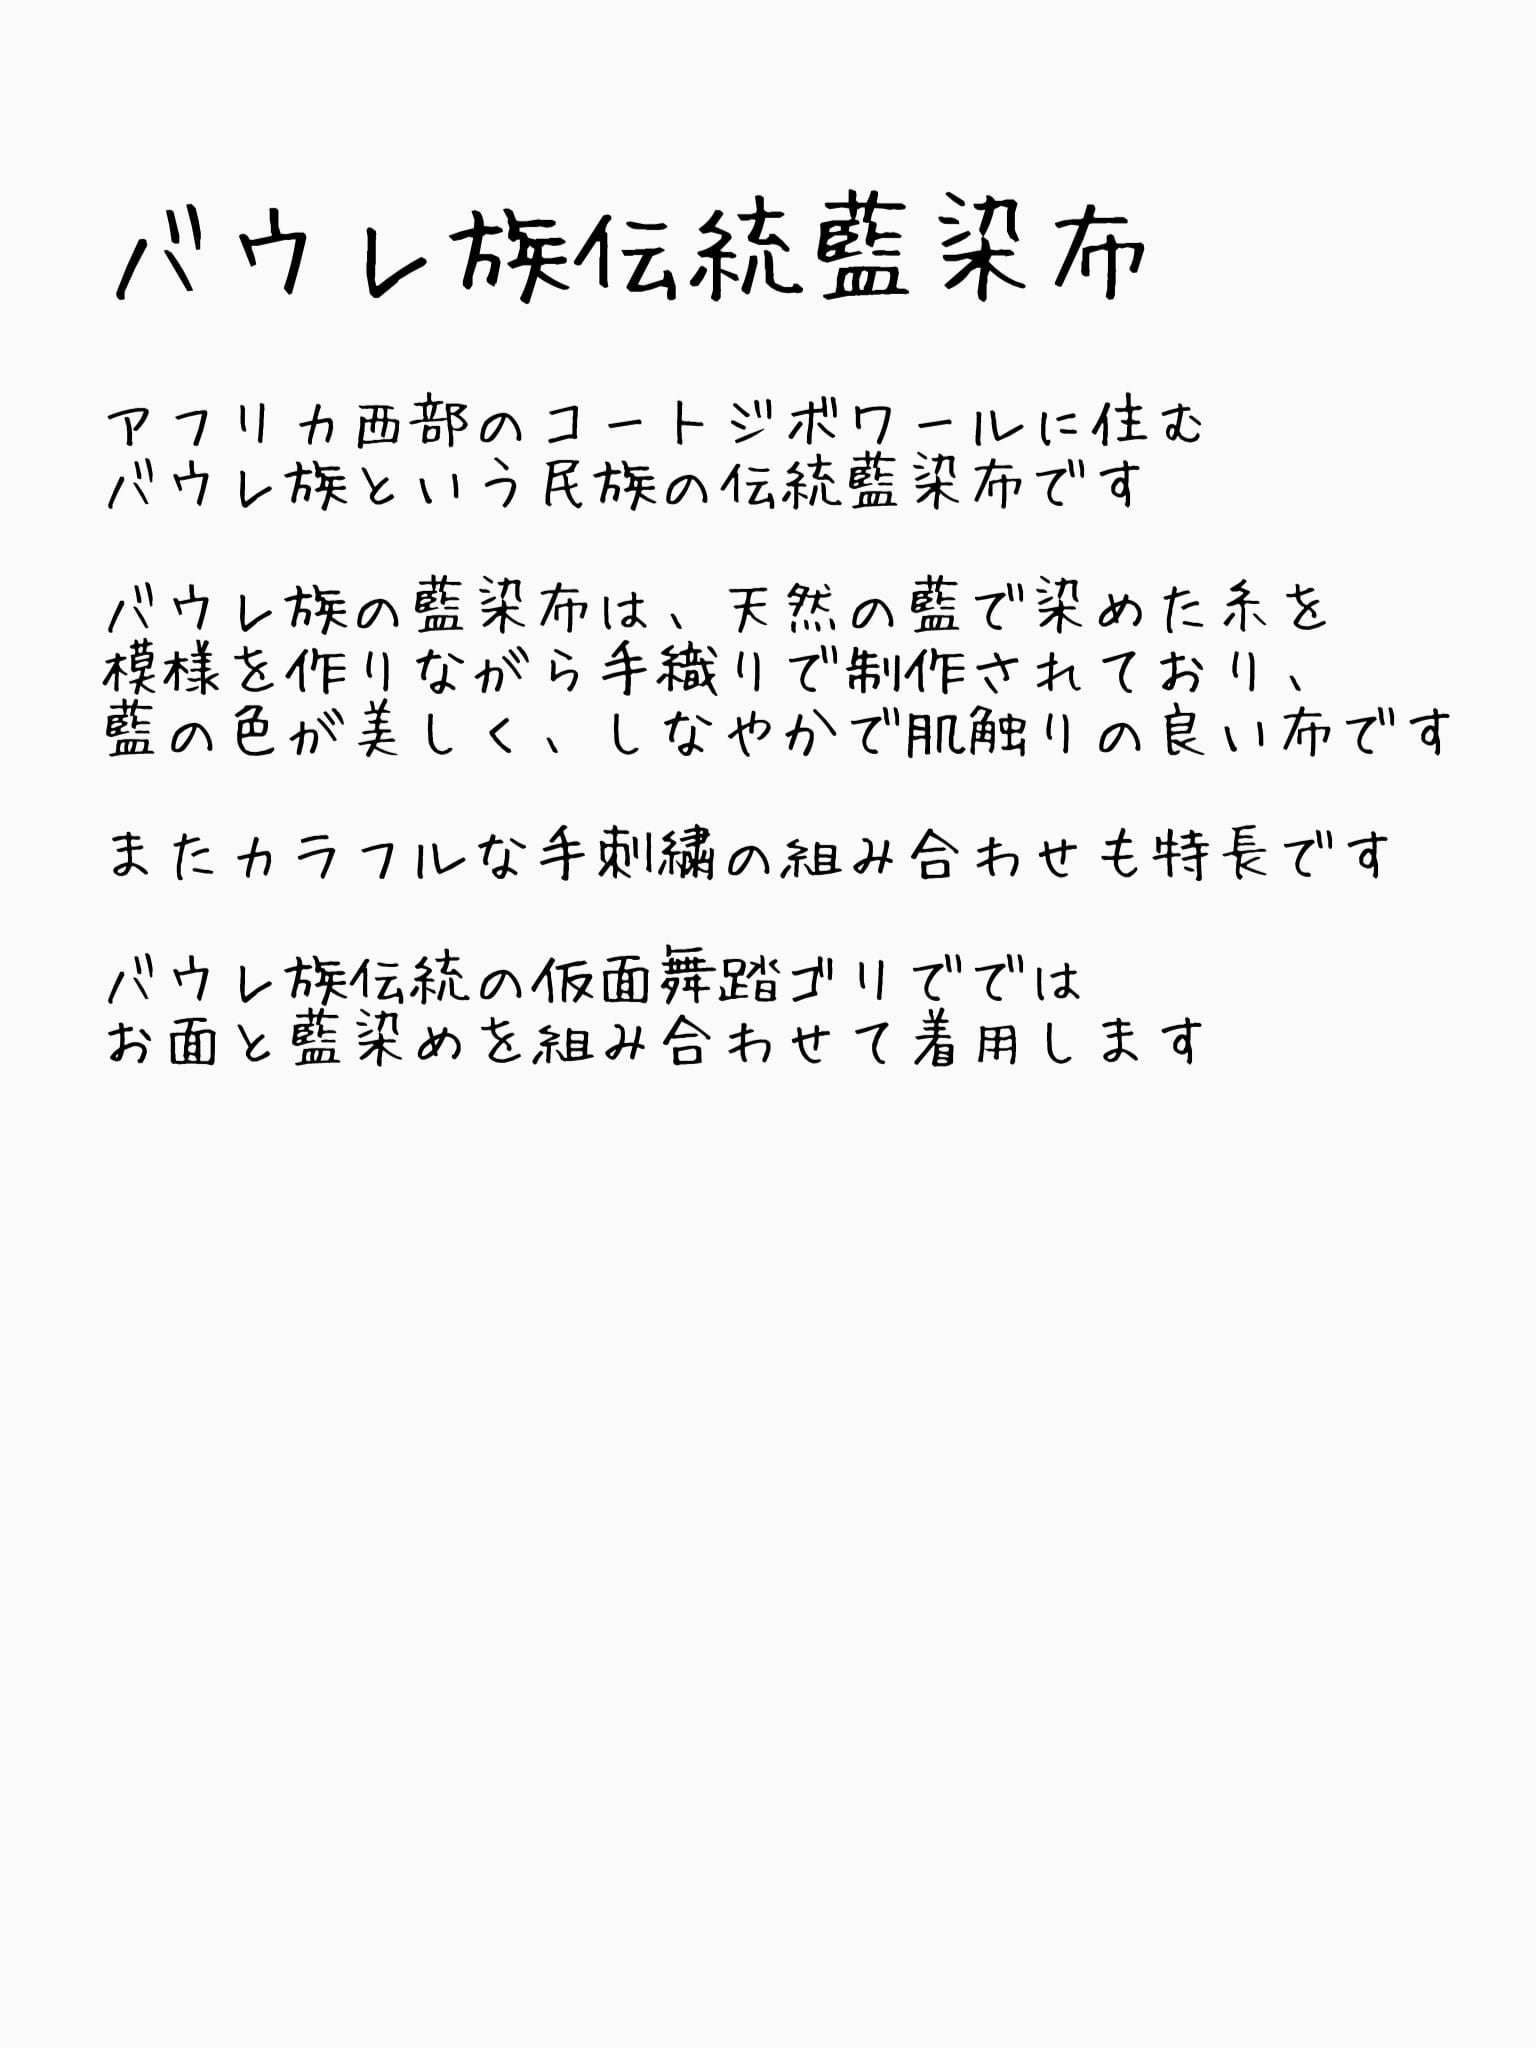 バウレ族伝統藍染布
アフリカ西部のコートジボワールに住む
バウレ族という民族の伝統藍染布です
バウレ族の藍染布は、天然の藍で染めた糸を
模様を作りながら手織りで制作されており、
藍の色が美しく、しなやかで肌触りの良い布です
またカラフルな手刺繍の組み合わせも特長です
バウレ族伝統の仮面舞踏ゴリででは
お面と藍染めを組み合わせて着用します